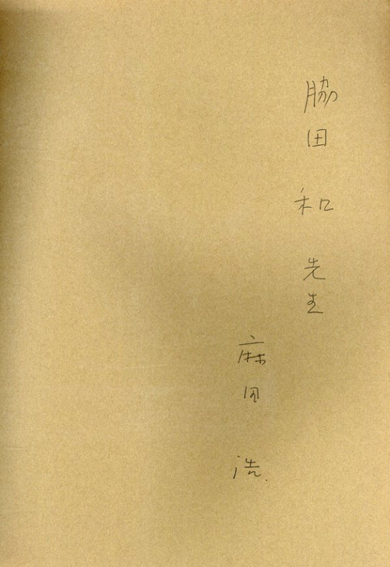 脇田和先生
麻田浩